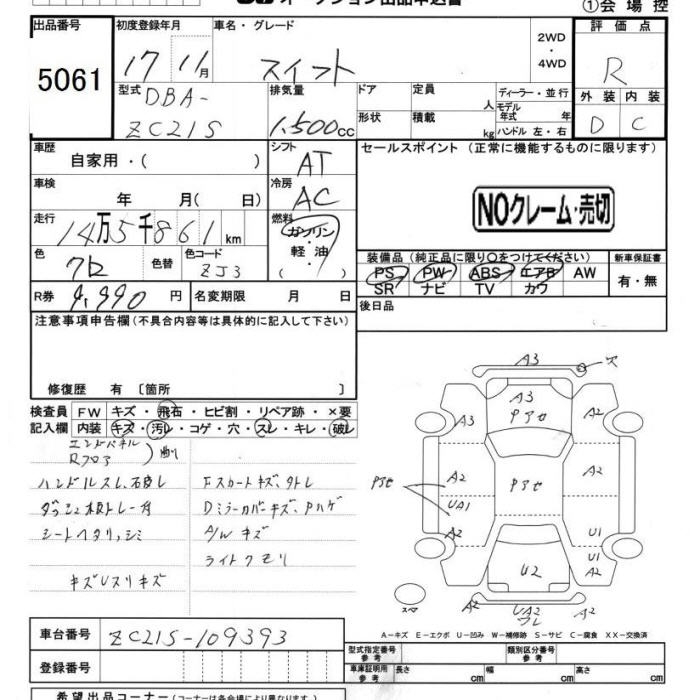 オークション出品申込書
①会場控
出品番号 初度登録年月 車名・グレード 評価点
5061
17 11月 スイフト 2WD ・ 4WD R
型式 DBA-ZC21S
排気量 1,500cc
ドア 定員 人 ディーラー・並行
形状 積載 kg モデル年式 年
ハンドル 左・右
外装 内装
D C
車歴 自家用・( )
シフト AT
セールスポイント (正常に機能するものに限ります)
車検 年 月( 日)
冷房 AC
NOクレーム・売切
走行 14万5千861km
燃料 ガソリン・軽油
色 クロ 色替 色コード ZJ3
装備品 (純正品に限り○をつけてください) 新車保証書
PS PW ABS エアB AW 有・無
SR ナビ TV カワ
R券 9,990 円 名変期限 月 日
後日品
注意事項申告欄(不具合内容等は具体的に記入して下さい)
修復歴 有 [箇所 ]
検査員 FW キズ・飛石・ヒビ割・リペア跡・×要
記入欄 内装 キズ・汚レ・コゲ・穴・スレ・キレ・破レ
エンドパネル
Rフロア
ハンドルスレ、
Fスカートキズ、
Dミラーカバーキズ、Pハゲ
シートヘタリ、シミ
A/Wキズ
ライトクモリ
キズUスリキズ
A3
A3
Pアセ
A3
A2
Pアセ
A2
UA1
Pアセ
A2
A2
U1
U1
A2
A2
U2
UA2
スペ
A-キズ E-エクボ U-凹み W-補修跡 S-サビ C-腐食 XX-交換済
車台番号 ZC21S-109393
登録番号
型式指定番号 参考 類別区分番号 参考
車庫証明用 参考 長さ cm 幅 cm 高さ cm
希望出品コーナー(コーナーは各会場により異なります)